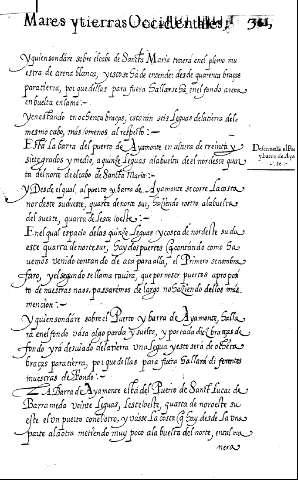 Mares y tierras Occidentales,
311,
Y quien sondare sobre el cabo de Santta Maria traera en el plomo mu
estra de arena blanca, y esto se ha de entender desde quarenta braços
para tierra, por que dellas para fuera hallarse ha en el fondo arena
enbuelta en lama:—
Y en estando en ochenta braças, estaran seis leguas de la tierra del
mesmo cabo, mas o menos al respecto:—
Està la barra del puerto de Ayamonte en altura de treinta y
siete grados y medio, a quinze leguas a la buelta del nordeste quar
ta del norte del cabo de Santta Maria:—
Y Desde el qual, al puerto y barra de Ayamonte se corre la costa
nordeste sudueste, quarta de norte sur, haziendo rostro a la buelta
del sueste, quarta de lest oeste:—
En el qual espacio de las quinze leguas y costa de nordeste su du
este quarta de norte sur, hay dos puertos (contando como ha
vemos venido contando de acà para allà) el Primero se nombra
faro, y el segundo se llama tavira, que por no ser puertos apropo
to de nuestras naos, passaremos de largo no haziendo dellos mas
mencion:—
Y quien sondare sobre el Puerto y barra de Ayamonte, halla
rà en el fondo vasa algo parda y suelta, y por cada diez braças de
fondo yrà desviado de la tierra una legua y esto sera de ochenta
braças para tierra, por que dellas para fuera hallarà diferentes
muestras de fondo:—
La Barra de Ayamonte està del Puerto de Santt Lucas de
Barrameda veinte leguas, Leste oeste, quarta de noroeste su
este el un puerto con el otro, y vasse la costa (que hay desde la una
parte a la otra metiendo muy poco a la buelta del norte, en tal ma
nera
Descendia el Pu
y barra de Aya